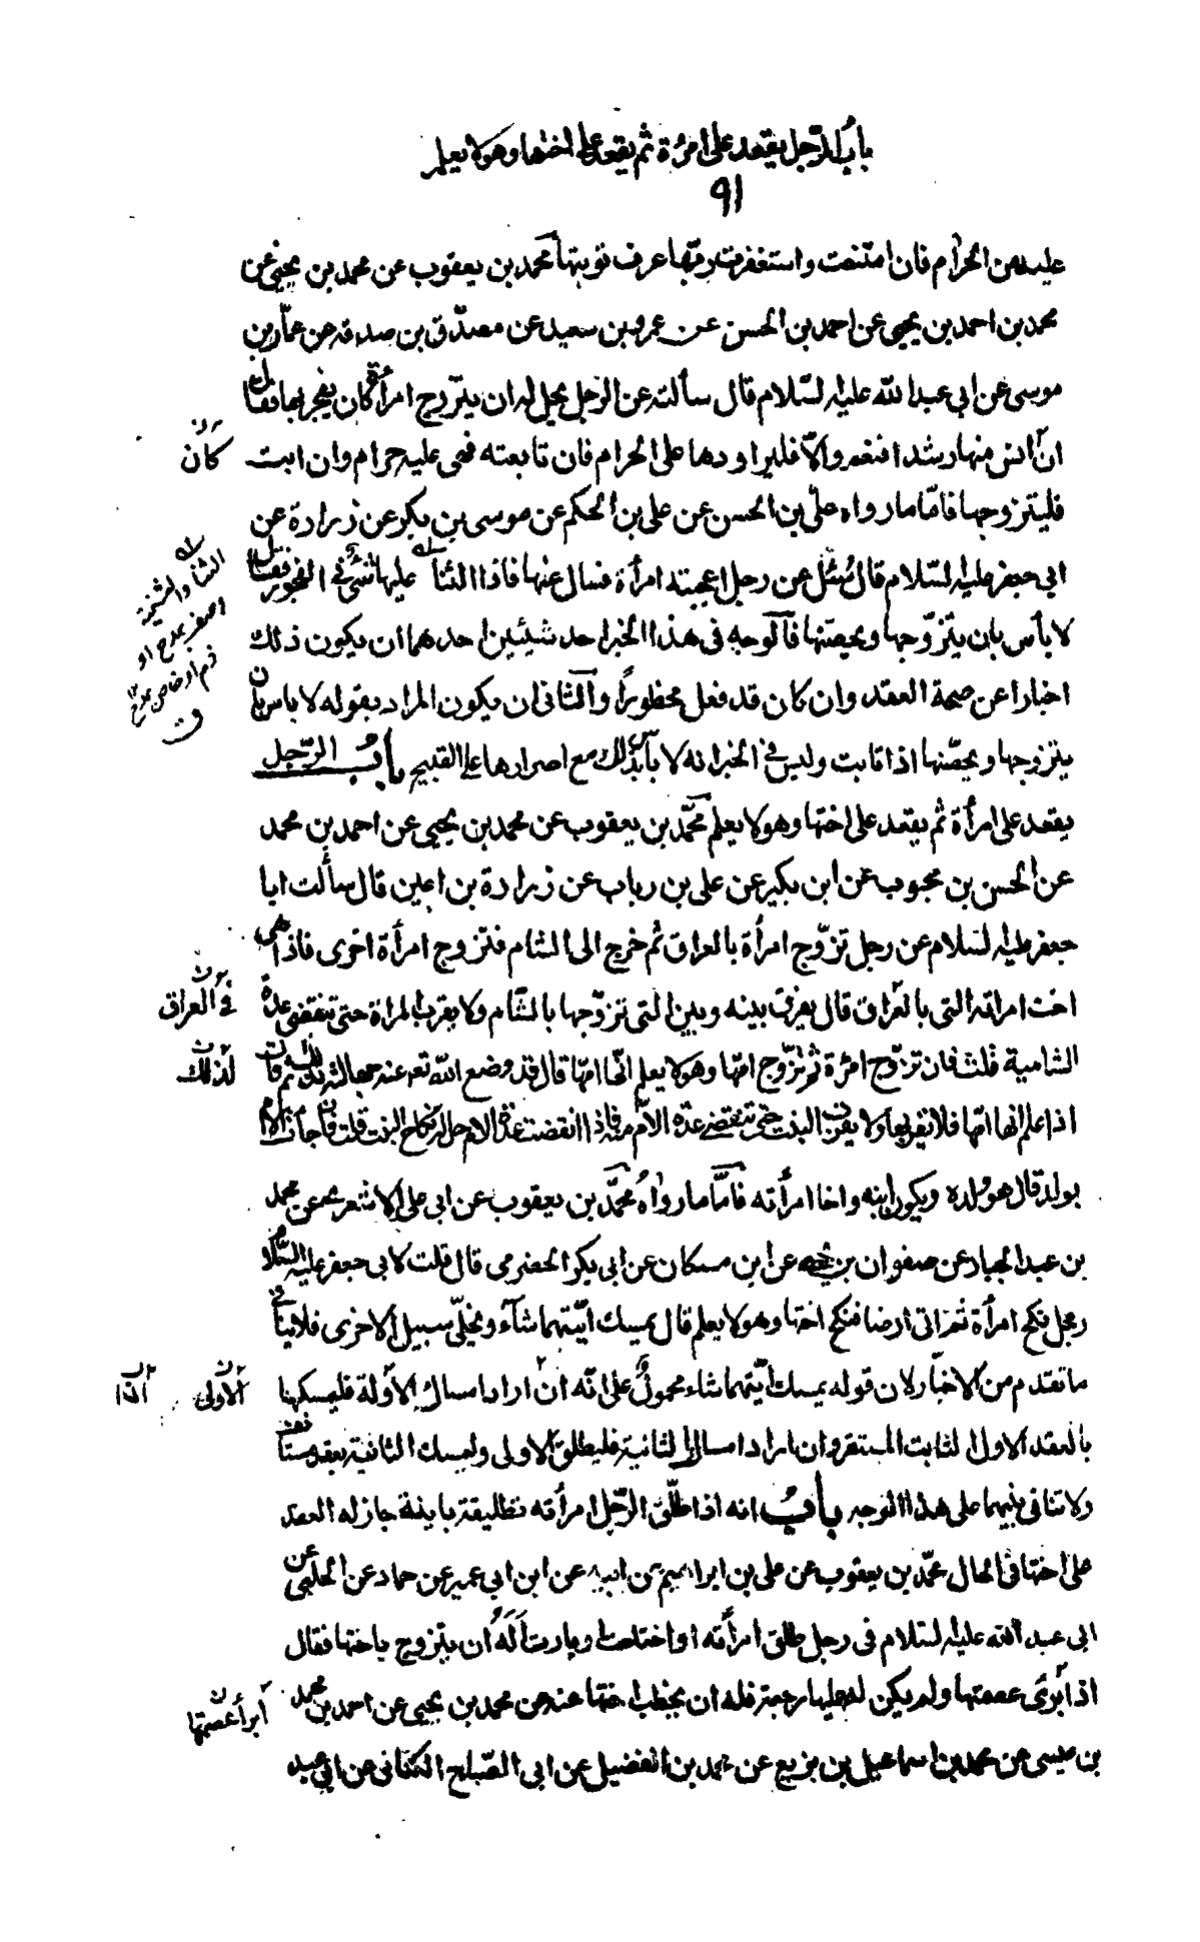 باب الرّجل يعقد على امرءة ثم يعقد على اختها وهو لا يعلم
٩١
عليه من الحرام فان امتنعت واستغفرت ربّها عرف توبتها محمد بن يعقوب عن محمد بن يحيى عن
محمد بن احمد بن يحيى عن احمد بن الحسن عن عمرو بن سعيد عن مصدّق بن صدقه عن عمّار بن
موسى عن ابي عبد الله عليه السّلام قال سألته عن الرجل يحل له ان يتزّوج امرأة كان يفجر بها فقال
ان انس منها رشدا فنعم والّا فليراودها على الحرام فان تابعته فهى عليه حرام وان ابت
كان ن
فليتزوجها فامّا ما رواه علىّ بن الحسن عن على بن الحكم عن موسى بن بكر عن زرارة عن
ابى جعفر عليه السّلام قال سُئل عن رجل اعجبته امرأة فسال عنها فاذا الثنا عليها شئ فى الفجور فقال
لا بأس بان يتزوّجها ويحصّنها فالوجه فى هذا الخبر احد شيئين احدهما ان يكون ذلك
اخبارا عن صحة العقد وان كان قد فعل محظوراً والثانى ان يكون المراد بقوله لا باس بان
يتزوجها ويحصّنها اذا تابت وليس فى الخبر انه لا بأس بذلك مع اصرارها على القبيح بابُ الرّجل
يعقد على امرأة ثم يعقد على اختها وهو لا يعلم محمّد بن يعقوب عن محمد بن يحيى عن احمد بن محمد
عن الحسن بن محبوب عن ابن بكير عن على بن رياب عن زرارة بن اعين قال سألت ابا
جعفر عليه السّلام عن رجل تزوّج امرأة بالعراق ثم خرج الى الشام فتزوج امرأة اخرى فاذا هى
اخت امراته التى بالعراق قال يفرق بينه وبين التى تزوّجها بالشّام ولا يقرب المراة حتى تنقضى عدة
فى العراق ن
الشامية قلت فان تزوّج امرءة ثم تزوّج امّها وهو لا يعلم انّها امّها قال قد وضع الله تع عنه جهالته بذلك ثم قال
لذلك ن
اذا علم انها امّها فلا يقربها ولا يقرب البنت حتى تنقضى عدّة الامّ منه فاذا انقضت عدة الام حل له نكاح البنت قلت فان جاءت الام
بولد قال هو ولده ويكون ابنه واخا امرأته فامّا ما رواهُ محمّد بن يعقوب عن ابى على الاشعرى عن محمد
بن عبد الجبار عن صفوان بن يحيى عن ابن مسكان عن ابى بكر الحضرمى قال قلت لابى جعفر عليه السّلام
رجل نكح امرأة ثم اتى ارضا فنكح اختها وهو لا يعلم قال يمسك ايّتهما شآء ويخلّى سبيل الاخرى فلا ينافى
ما تقدم من الاخبار لان قوله يمسك ايّتهما شاء محمولٌ على انّه ان اراد امساك الاوّلة فليمسكها
الاولى ن اذا ن
بالعقد الاول الثابت المستقر وان اراد امساك الثانية فليطلق الاولى وليمسك الثانية بعقد مستأنف
ولا تنافى بينهما على هذا الوجه بابُ انه اذا طلّق الرّجل امرأته تطليقة باينة جاز له العقد
على اختها فى الحال محمّد بن يعقوب عن على بن ابراهيم عن ابيه عن ابن ابى عمير عن حماد عن الحلبى عن
ابى عبد الله عليه السّلام فى رجل طلق امرأته او اختلعت او بارت اَلَهُ ان يتزوج باختها فقال
اذا برئ عصمتها ولم يكن له عليها رجعة فله ان يخطب اختها عنه عن محمد بن يحيى عن احمد بن محمد
أبرأ عصمتها ن
بن عيسى عن محمد بن اسماعيل بن بزيع عن محمد بن الفضيل عن ابى الصّباح الكنانى عن ابى عبد